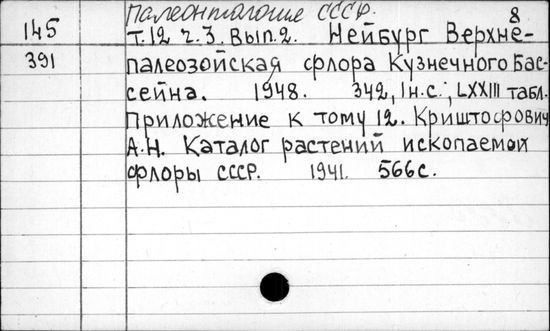 Палеонтология СССР. 8
145 Т.12 ч.3. Вып.2. Нейбург Верхне-
391 палеозойская флора Кузнечного Бас-
сейна. 1948. 342, 1н.с., LXXIII табл.
Приложение к тому 12. Криштофович
А.Н. Каталог растений ископаемой
флоры СССР. 1941. 566с.